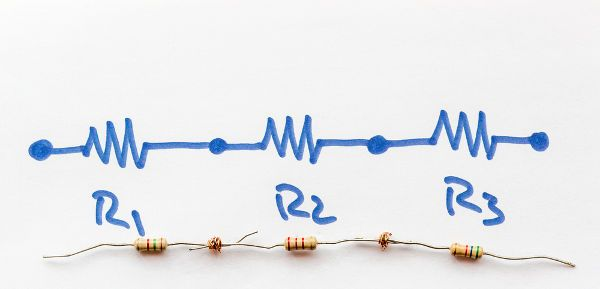 R1 R2 R3